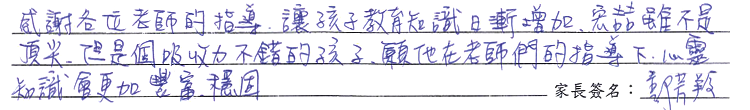 感謝各位老師的指導,讓孩子教育知識日漸增加,宏喆雖不是
頂尖、但是個吸收力不錯的孩子,願他在老師們的指導下,心靈
知識會更加豐富、穩固 家長簽名: